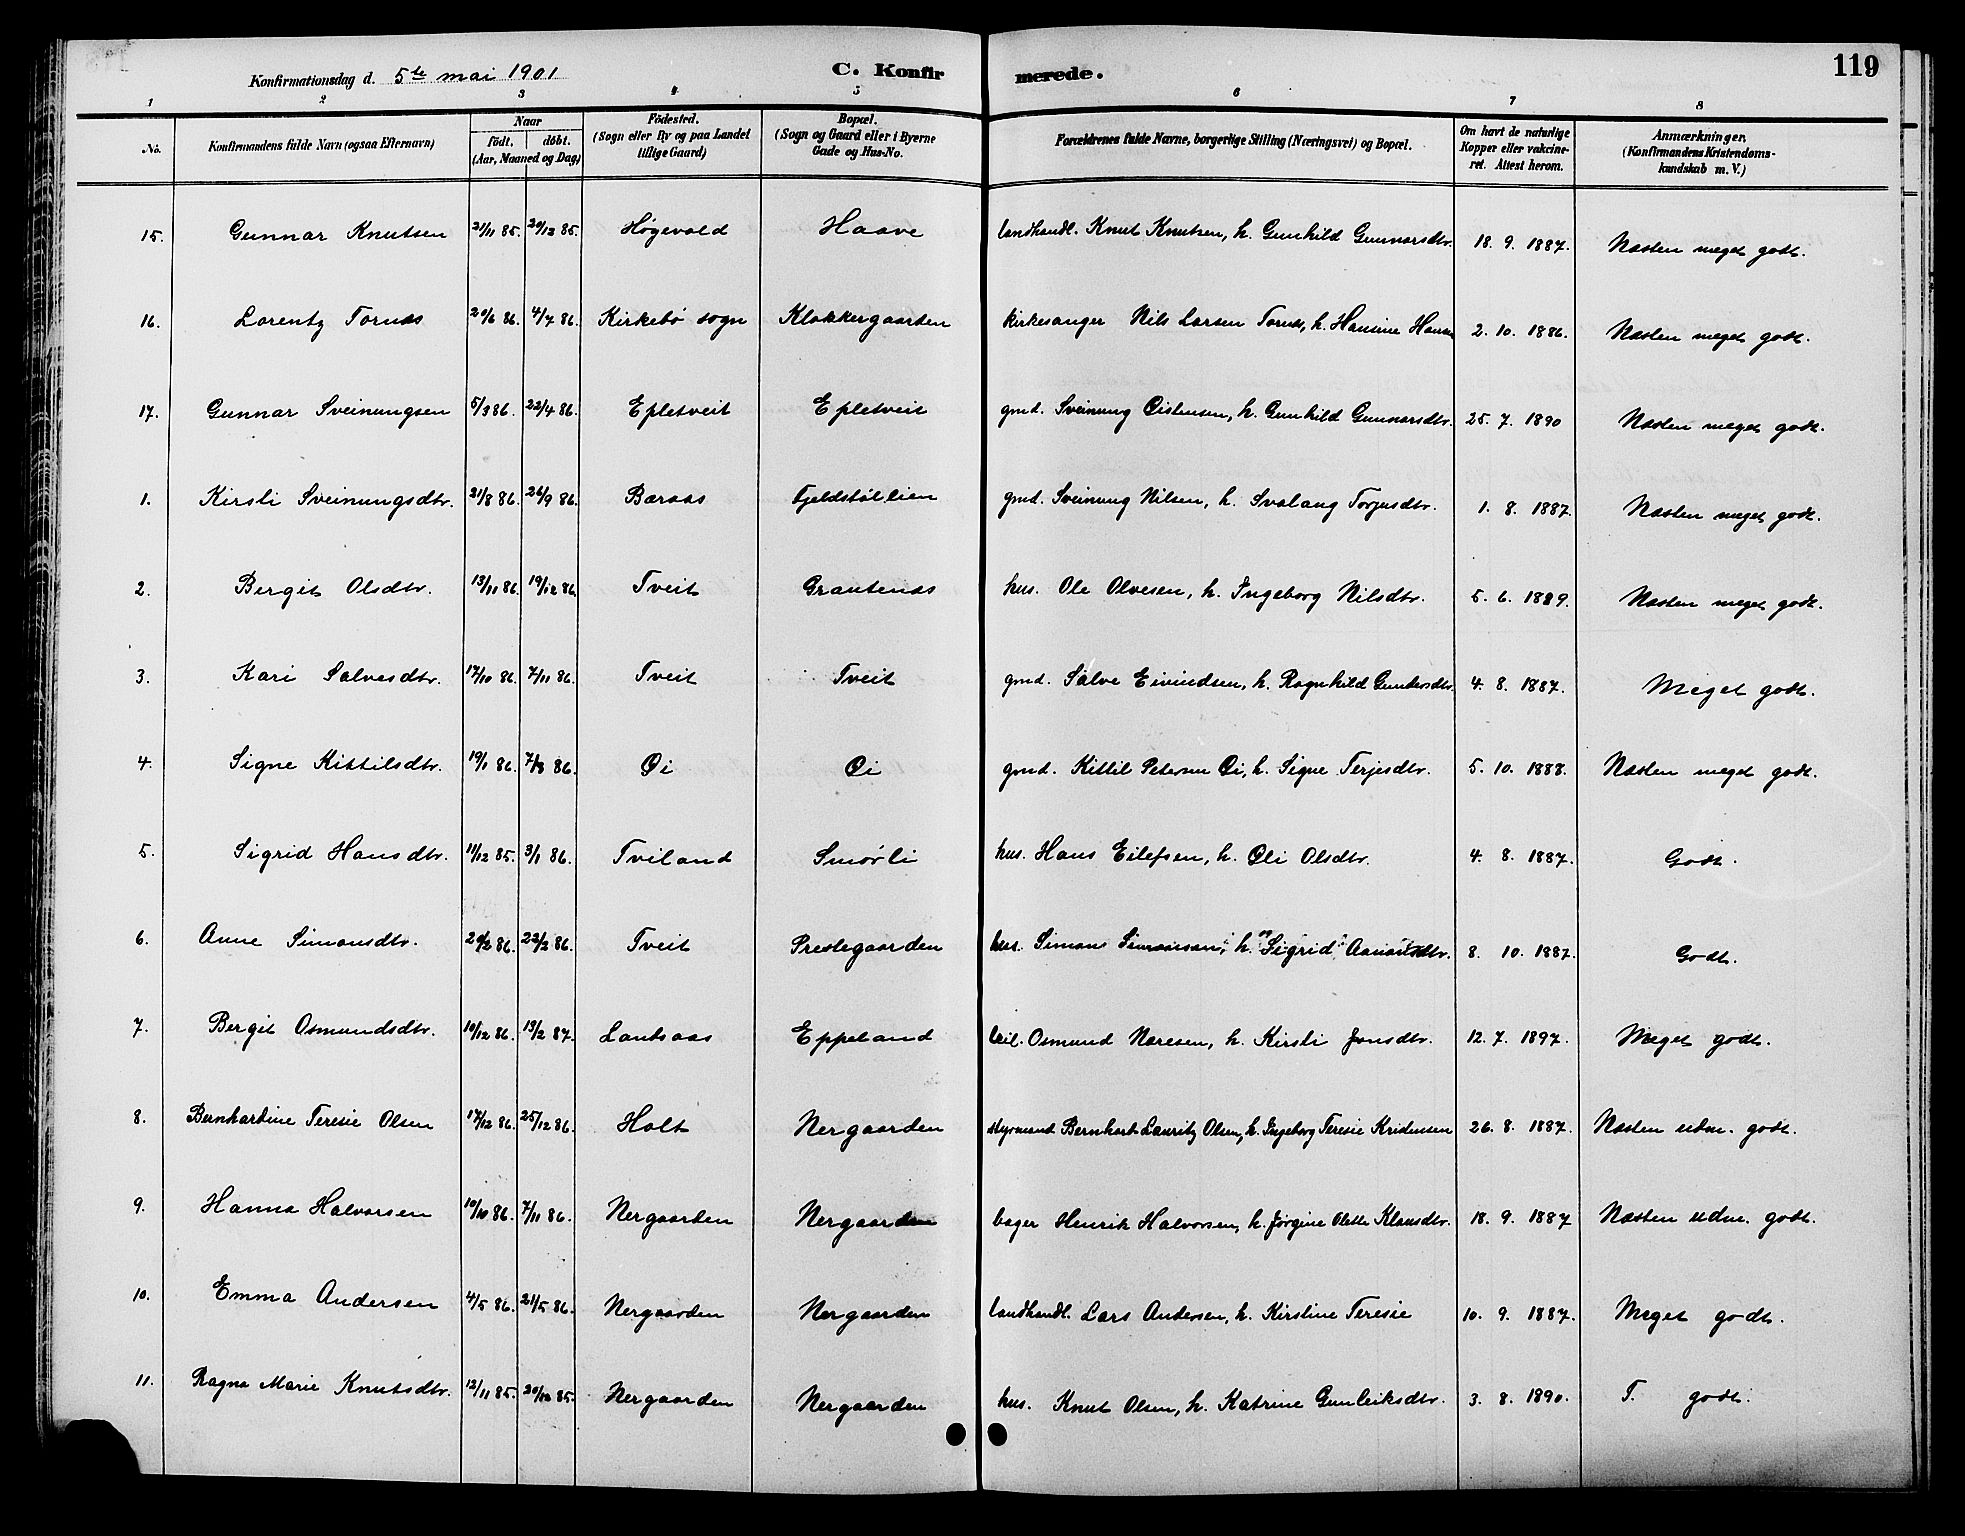 119
Konfirmationsdag d. 5te mai 1901 C. Konfirmerede.
1 2 3 4 5 6 7 8
No. Konfirmandens fulde Navn (ogsaa Efternavn) Naar födt. döbt. (Aar, Maaned og Dag) Födested. (Sogn eller By og paa Landet tillige Gaard) Bopæl. (Sogn og Gaard eller i Byerne Gade og Hus-No. Forældrenes fulde Navne, borgerlige Stilling (Næringsvei) og Bopæl. Om havt de naturlige Kopper eller vakcineret. Attest herom. Anmærkninger. (Konfirmandens Kristendomskundskab m. V.)
15. Gunnar Knutsen 21/11 85. 20/12 85. Høgevold Haave landhandl. Knut Knutsen, h. Gunhild Gunnarsdtr. 18. 9. 1887. Næsten meget godt.
16. Lorentz Tornes 20/6 86. 4/7 86. Kirkebö sogn Klokkergaarden kirkesanger Nils Larsen Tornes, h. Hansine Hansen 2. 10. 1886. Næsten meget godt.
17. Gunnar Sveinungsen 5/3 86. 22/4 86. Epletveit Epletveit gmd. Sveinung Øistensen, h. Gunhild Gunnarsdtr. 25. 7. 1890 Næsten meget godt.
1. Kirsti Sveinungsdtr. 21/8 86. 26/9 86. Baraas Fjeldstøllien gmd. Sveinung Nilsen, h. Svalaug Torjusdtr. 1. 8. 1887. Næsten meget godt.
2. Bergit Olsdtr. 13/11 86. 19/12 86. Tveit Grautenes hus. Ole Olvesen, h. Ingeborg Nilsdtr. 5. 6. 1889. Næsten meget godt.
3. Kari Salvesdtr. 17/10 86. 7/11 86. Tveit Tveit gmd. Salve Eivindsen, h. Ragnhild Guntersdtr. 4. 8. 1887. Meget godt.
4. Signe Kittilsdtr. 19/1 86. 7/3 86. Øi Øi gmd. Kittil Petersen Øi, h. Signe Terjesdtr. 5. 10. 1888. Næsten meget godt.
5. Sigrid Hansdtr. 11/12 85. 3/1 86. Tviland Smørli hus. Hans Eilefsen, h. Oli Olsdtr. 4. 8. 1887. Godt.
6. Anne Simonsdtr. 86. 22/2 86. Tveit Prestegaarden hus. Simons Simonsen, h. Sigrid Aanonsdtr. 8. 10. 1887. Godt.
7. Bergit Osmundsdtr. 10/12 86. 13/2 87. Lantsaas Eppeland leil. Osmund Naresen, h. Kirsti Jonsdtr. 12. 7. 1897. Meget godt.
8. Bernhardine Teresie Olsen 17/12 86. 25/12 86. Holt Nergaarden styrmand Bernhart Lauritz Olsen, h. Ingeborg Teresie Kristensen 26. 8. 1887. Næsten udm. godt.
9. Hanna Halvorsen 10/10 86. 7/11 86. Nergaarden Nergaarden bager Henrik Halvorsen, h. Jørgine Olette Klausdtr. 18. 9. 1887 Næsten udm. godt.
10. Emma Andersen 4/5 86. 21/5 86. Nergaarden Nergaarden landhandl. Lars Andersen, h. Kirstine Teresie 10. 9. 1887. Meget godt.
11. Ragna Marie Knutsdtr. 12/11 85. 20/12 85. Nergaarden Nergaarden hus. Knut Olsen, h. Katrine Gunleiksdtr. 3. 8. 1890. T. godt.